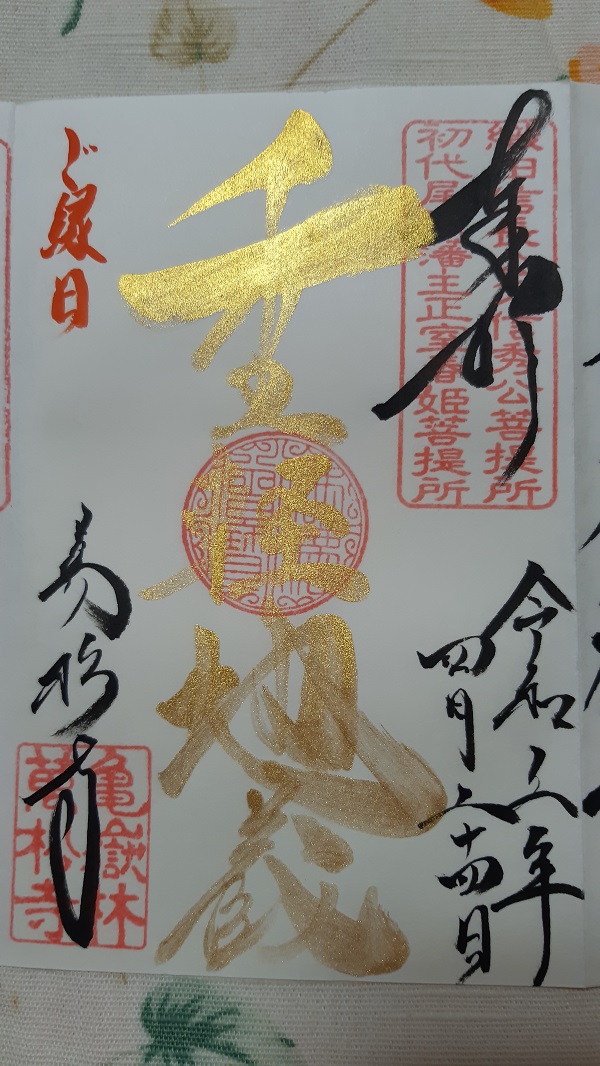 奉拝
織田信長公父信秀公菩提所
初代尾張藩主正室春姫菩提所
令和六年
四月二十四日
重軽地蔵
ご縁日
萬松寺
亀嶽林
萬松寺